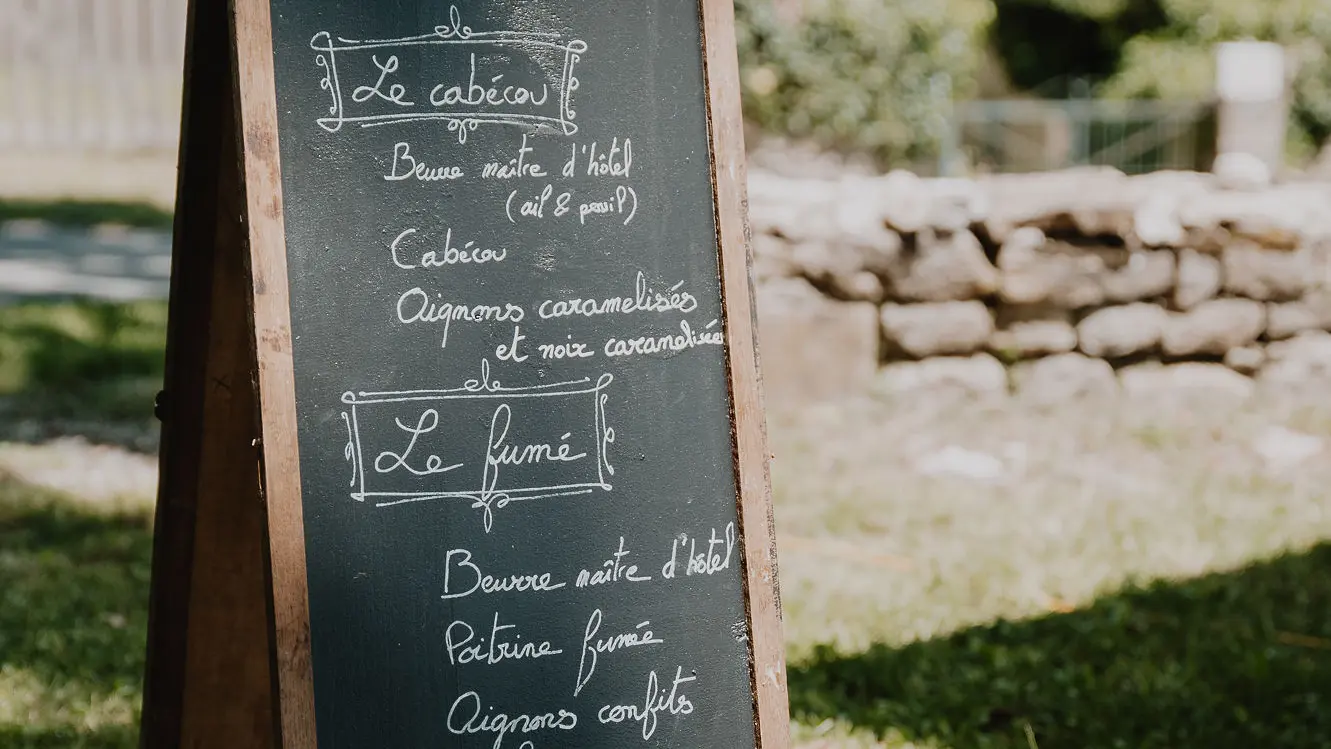 Le cabécou
Beurre maître d'hôtel
(ail & persil)
Cabécou
Oignons caramelisés
et noix caramelisées
Le fumé
Beurre maître d'hôtel
Poitrine fumée
Oignons confits